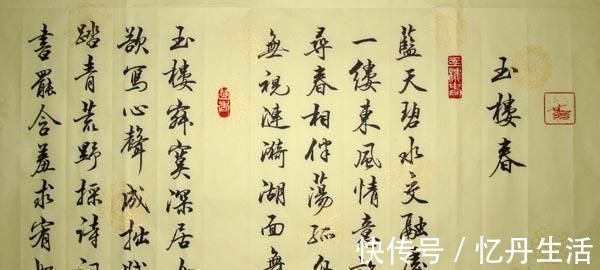 玉樓春
藍天碧水交融
一缕東風情意
尋春相伴蕩孤舟
無視漣漪湖面無
玉樓寂寞深居
欲寫心聲成拙賦
踏青荒野採詩詞
書罷含羞求宥
快传号／忆丹生活